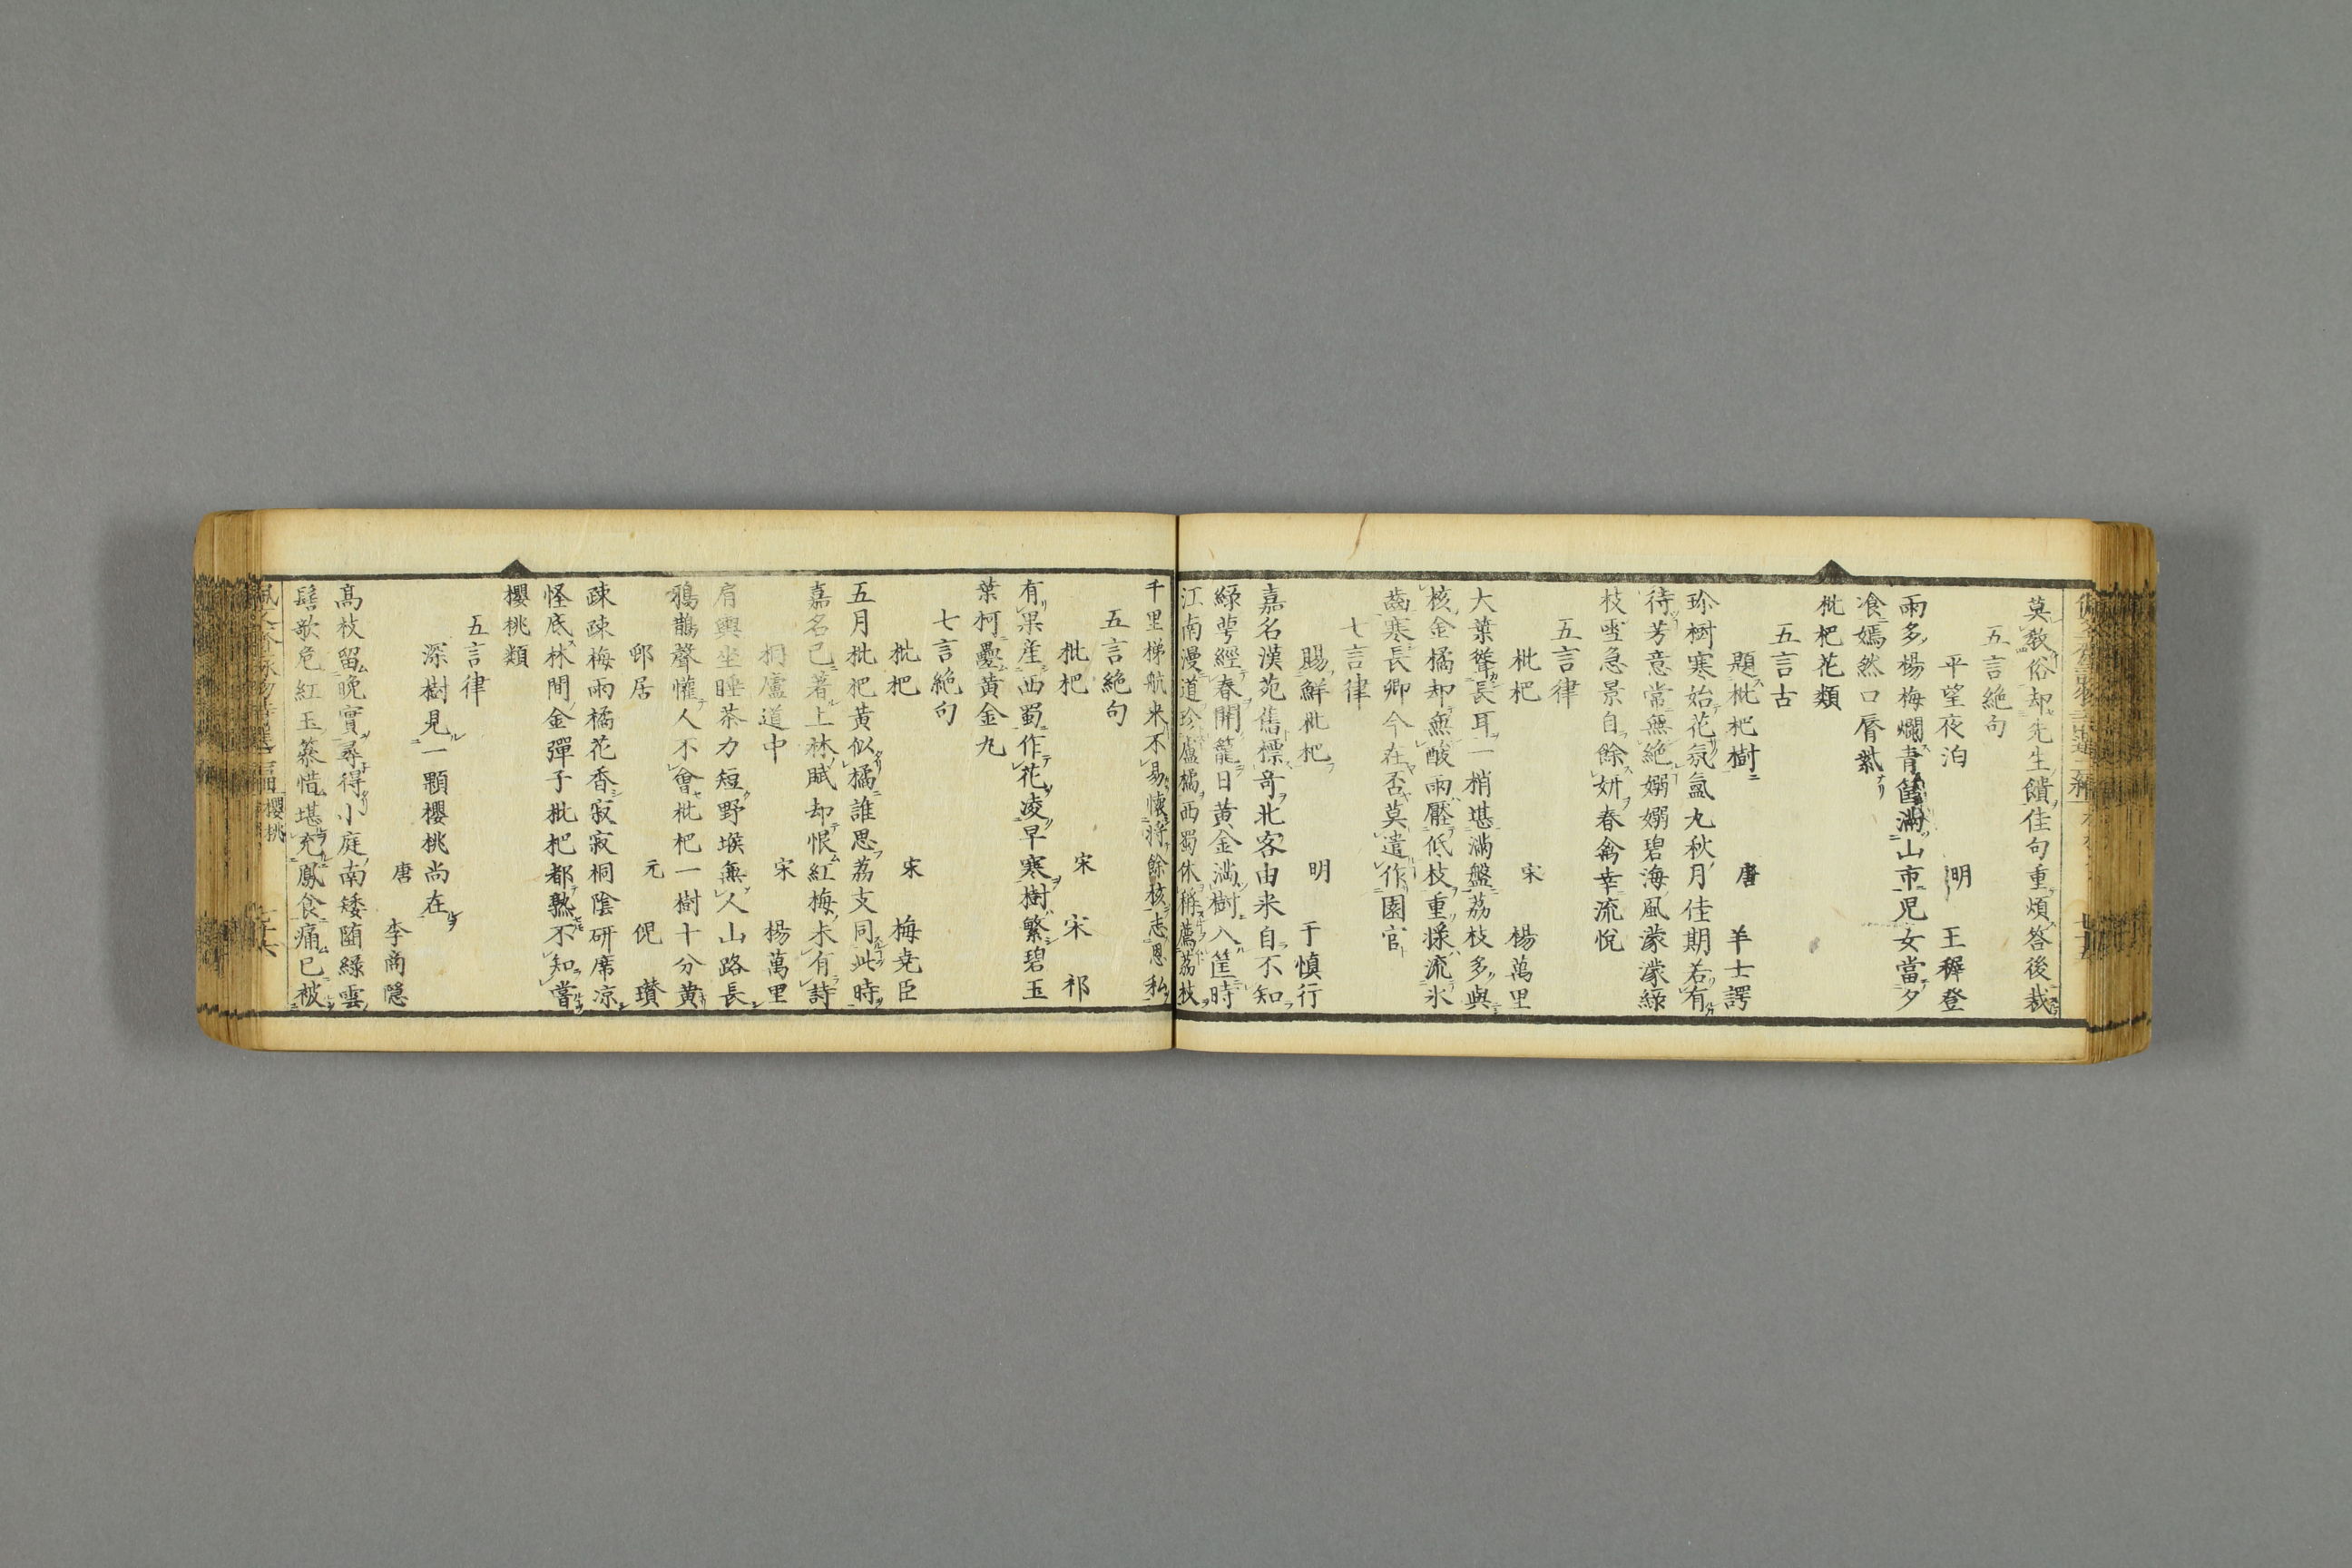 莫教俗却先生饋佳句重煩答後裁
五言絶句
平望夜泊　明　王穉登
雨多楊梅爛青筐滿山市兒女當夕
飡嫣然口脣紫
枇杷花類
五言古
題枇杷樹　唐　羊士諤
珍樹寒始花氛氳九秋月佳期若有
待芳意常無絶嫋嫋碧海風濛濛綠
枝雪急景自餘妍春禽幸流悅
五言律
枇杷　宋　楊萬里
大葉聳長耳一梢堪滿盤荔枝多與
核金橘却無酸雨壓低枝重漿流氷
齒寒長卿今在否莫遣作園官
七言律
賜鮮枇杷　明　于愼行
嘉名漢苑舊標竒北客由來自不知
緑萼經春開籠日黄金滿樹入筐時
江南漫道珍盧橘西蜀休稱薦荔枝
千里梯航來不易懷將餘核志恩私
五言絶句
枇杷　宋　宋祁
有果産西蜀作花凌早寒樹繁碧玉
葉柯疊黄金丸
七言絶句
枇杷　宋　梅尭臣
五月枇杷黄似橘誰思荔支同此時
嘉名已著上林賦却恨紅梅未有詩
桐廬道中　宋　楊萬里
肩輿坐睡茶力短野堠無人山路長
鴉鵲聲懽人不會枇杷一樹十分黄
邨居　元　倪瓉
疎疎梅雨橘花香寂寂桐陰研席凉
怪底林間金彈子枇杷都熟不知嘗
櫻桃類
五言律
深樹見一顆櫻桃尚在
唐　李商隱
高枝留晩實尋得小庭南矮隨綠雲
髻欹危紅玉簪惜堪充鳳食痛已被
櫻桃